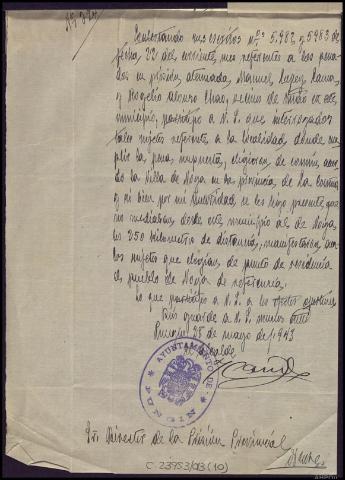 Contestando sus escritos nºs 5.982 y 5983 de
fecha 22 del corriente, mes referente a los pena-
dos en prisión atenuada, Manuel
y Rogelio Alonso vecinos de en este
municipio, participo a V.S. que interrogados
tales sujetos referente a la localidad donde cum-
plir la pena impuesta, eligieron de común acuer-
do la Villa de Noya en la provincia de La Coruña
y si bien por mi Autoridad se les hizo presente que
no mediaban desde este municipio al de Noya
los 250 kilometros de distancia, manifestaron am-
bos sujetos que elegían de punto de residencia
el pueblo de Noya de referencia.
Lo que participo a V.S. a los efectos oportunos
Dios guarde a V.S. muchos años
28 de mayo de 1943
El Alcalde
AYUNTAMIENTO DE
Sr. Director de la Prisión Provincial
C-23953/03(10)